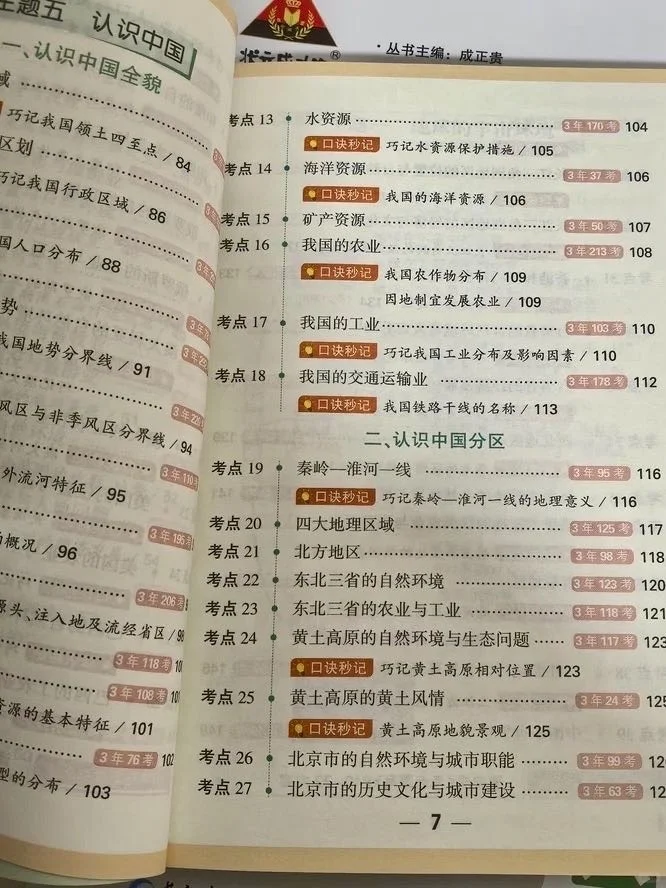 主题五 认识中国
一、认识中国全貌
域
巧记我国领土四至点 / 84
区划
巧记我国行政区域 / 86
国人口分布 / 88
势
我国地势分界线 / 91
风区与非季风区分界线 / 94
外流河特征 / 95
概况 / 96
3年206考
源头、注入地及流经省区 / 98
3年118考
3年108考
资源的基本特征 / 101
3年76考 102
型的分布 / 103
®
·丛书主编：成正贵
考点 13 水资源 3年170考 104
口诀秒记 巧记水资源保护措施 / 105
考点 14 海洋资源 3年37考 106
口诀秒记 我国的海洋资源 / 106
考点 15 矿产资源 3年50考 107
考点 16 我国的农业 3年213考 108
口诀秒记 我国农作物分布 / 109
因地制宜发展农业 / 109
考点 17 我国的工业 3年103考 110
口诀秒记 巧记我国工业分布及影响因素 / 110
考点 18 我国的交通运输业 3年178考 112
口诀秒记 我国铁路干线的名称 / 113
二、认识中国分区
考点 19 秦岭—淮河一线 3年95考 116
口诀秒记 巧记秦岭—淮河一线的地理意义 / 116
考点 20 四大地理区域 3年125考 117
考点 21 北方地区 3年98考 118
考点 22 东北三省的自然环境 3年123考 120
考点 23 东北三省的农业与工业 3年118考 121
考点 24 黄土高原的自然环境与生态问题 3年117考 123
口诀秒记 巧记黄土高原相对位置 / 123
考点 25 黄土高原的黄土风情 3年24考 125
口诀秒记 黄土高原地貌景观 / 125
考点 26 北京市的自然环境与城市职能 3年99考
考点 27 北京市的历史文化与城市建设 3年63考
— 7 —